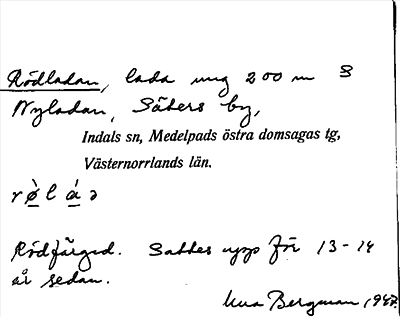 Rödladan, lada ung 200 m S
Nyladan, Säters by,
Indals sn, Medelpads östra domsagas tg,
Västernorrlands län.
rø̀lá̱ə
Rödfärgad. Sattes upp för 13-14
år sedan.
Bergman, 1947.